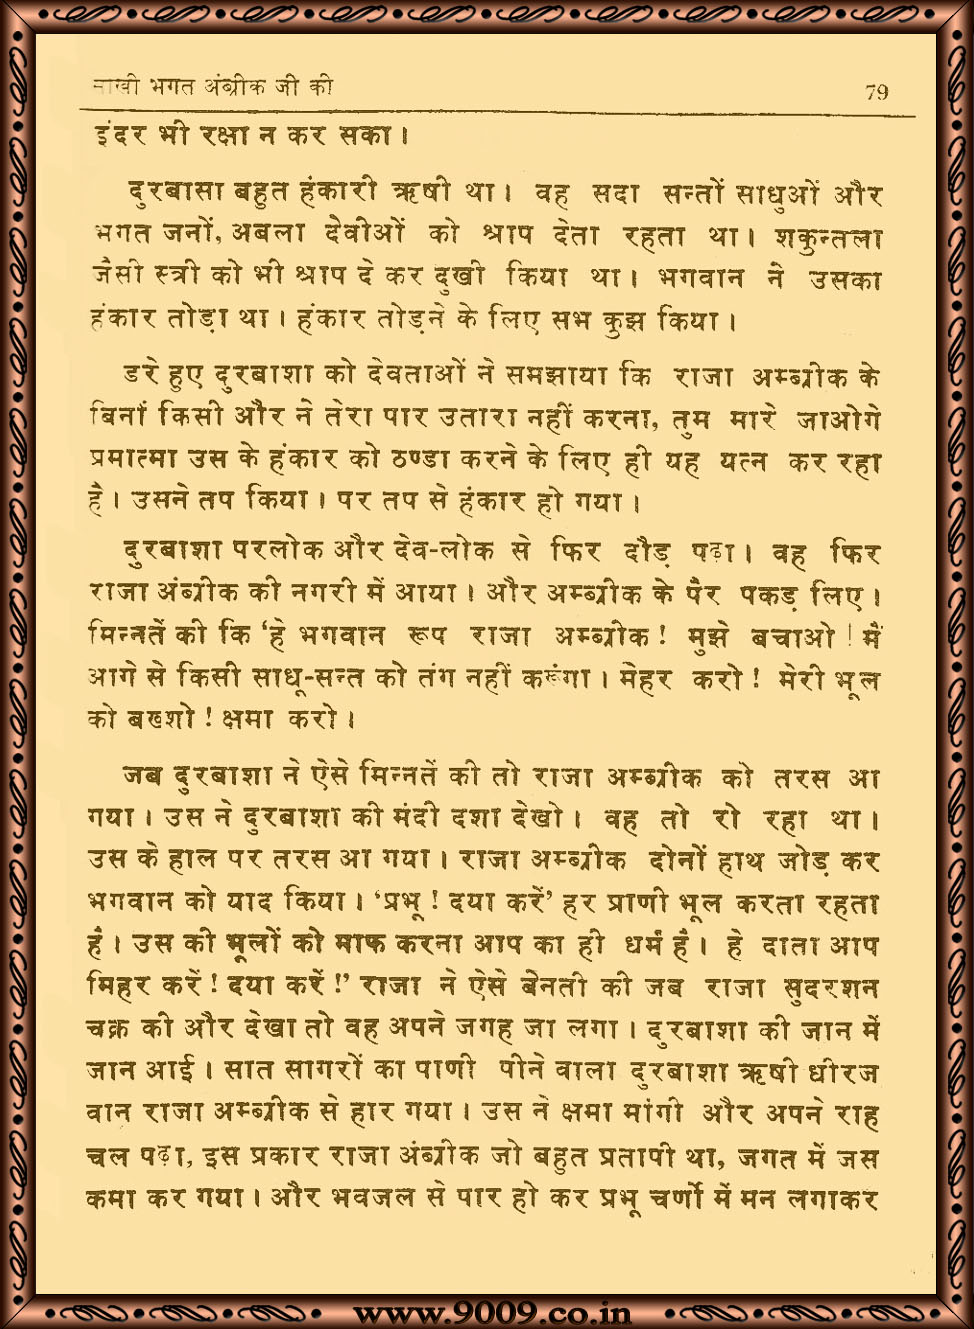 साखी भगत अंब्रीक जी की 79
इंदर भी रक्षा न कर सका ।
दुरबासा बहुत हंकारी ऋषी था । वह सदा सन्तों साधुओं और
भगत जनों, अबला देवीओं को श्राप देता रहता था । शकुन्तला
जैसी स्त्री को भी श्राप दे कर दुखी किया था । भगवान ने उसका
हंकार तोड़ा था । हंकार तोड़ने के लिए सभ कुझ किया ।
डरे हुए दुरबाशा को देवताओं ने समझाया कि राजा अम्ब्रीक के
बिनां किसी और ने तेरा पार उतारा नहीं करना, तुम मारे जाओगे
प्रमात्मा उस के हंकार को ठण्डा करने के लिए ही यह यत्न कर रहा
है । उसने तप किया । पर तप से हंकार हो गया ।
दुरबाशा परलोक और देव-लोक से फिर दौड़ पढ़ा । वह फिर
राजा अंब्रीक की नगरी में आया । और अम्ब्रीक के पैर पकड़ लिए ।
मिन्नतें की कि ‘हे भगवान रूप राजा अम्ब्रीक ! मुझे बचाओ ! मैं
आगे से किसी साधू-सन्त को तंग नहीं करूंगा । मेहर करो ! मेरी भूल
को बख्शो ! क्षमा करो ।
जब दुरबाशा ने ऐसे मिन्नतें की तो राजा अम्ब्रीक को तरस आ
गया । उस ने दुरबाशा की मंदी दशा देखी । वह तो रो रहा था ।
उस के हाल पर तरस आ गया । राजा अम्ब्रीक दोनों हाथ जोड़ कर
भगवान को याद किया । ‘प्रभू ! दया करें’ हर प्राणी भूल करता रहता
है । उस की भूलों को माफ करना आप का ही धर्म है । हे दाता आप
मिहर करें ! दया करें !’ राजा ने ऐसे बेनती की जब राजा सुदरशन
चक्र की और देखा तो वह अपने जगह जा लगा । दुरबाशा की जान में
जान आई । सात सागरों का पाणी पीने वाला दुरबाशा ऋषी धीरज
वान राजा अम्ब्रीक से हार गया । उस ने क्षमा मांगी और अपने राह
चल पढ़ा, इस प्रकार राजा अंब्रीक जो बहुत प्रतापी था, जगत में जस
कमा कर गया । और भवजल से पार हो कर प्रभू चर्णों में मन लगाकर
www.9009.co.in